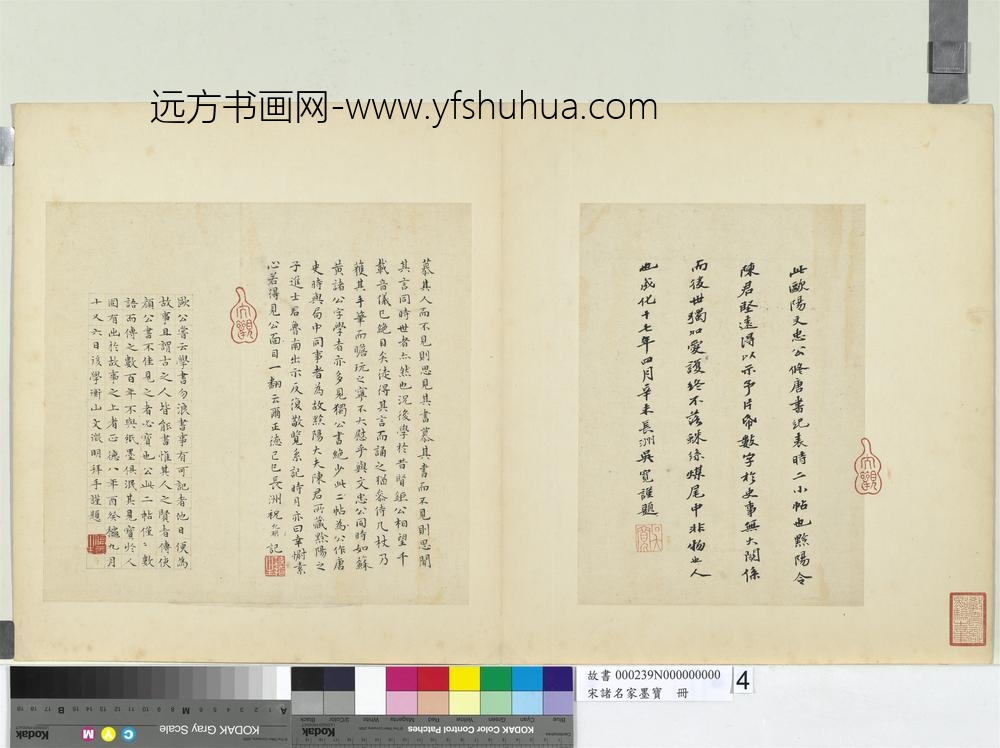 远方书画网-www.yfshuhua.com
此歐陽文忠公脩唐書紀表時二小帖也黟陽令
陳君堅遠得以示予片帋數字於史事無大關係
而後世獨加愛護終不落蛛絲煤尾中非物也人
也成化十七年四月辛未長洲吳寬謹題
慕其人而不見則思見其書慕其書而不見則思聞
其言同時世者亦然也況後學於昔賢鉅公相望千
載音儀已絶目矣徒得其言而誦之猶忝侍几杖乃
獲其手筆而瞻玩之寧不大慰乎與文忠公同時如蘇
黃諸公字學者亦多見獨公書絶少此二帖為公作唐
史時與局中同事者為故黟陽大夫陳君所藏黟陽之
子進士君魯南出示反復歎覽系記時月亦曰幸
心若得見公面目一翻云爾正德己巳長洲祝允明記
歐公嘗云學書勿浪書事有可記者他日便為
故事且謂古之人皆能書惟其人之賢者傳使
顏公書不佳見之者必寶也公此二帖僅〻數
語而傳之數百年不與紙墨俱泯其見寶於人
固有出於故事之上者正德八年癸酉九月
十又六日後學衡山文徵明拜手謹題
故書 000239N000000000
宋諸名家墨寶 冊
4
KODAK Gray Scale
Kodak
C
M
Y
A 1 2 3 4 5 6 M 8 9 10 11 12 13 14 15 B 17 18 19
KODAK Color Control Patches
Kodak
Blue
Cyan
Green
Yellow
Red
Magenta
White
3/Color
Black